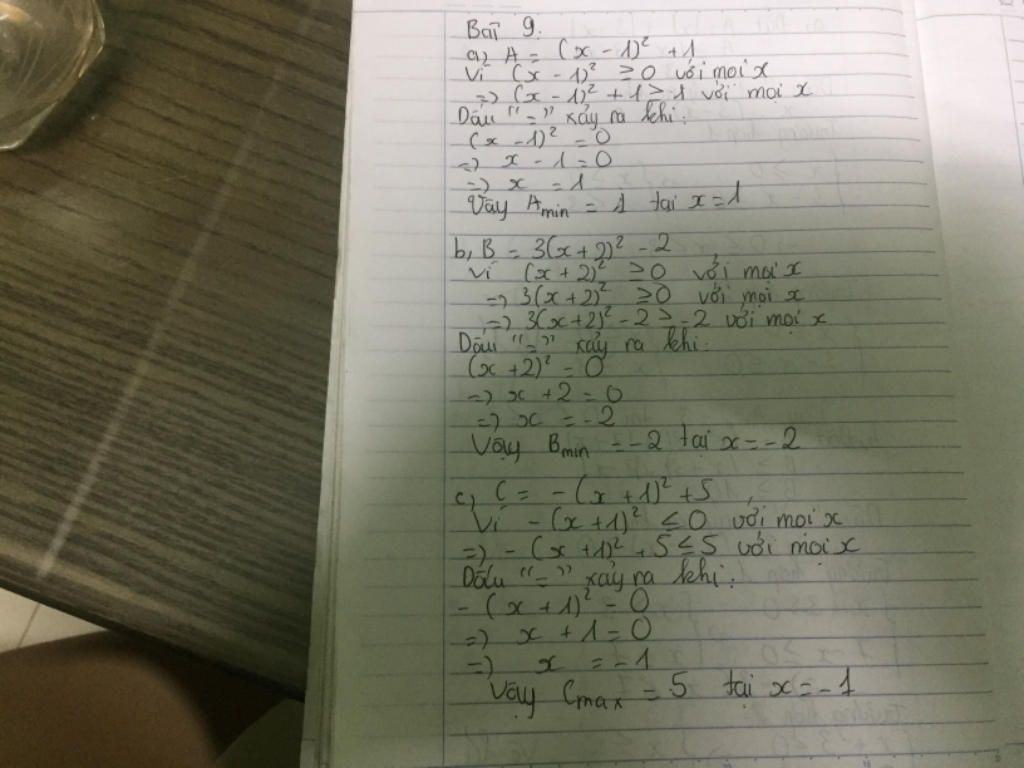 Bài 9.
a, A = (x - 1)² + 1
Vì (x - 1)² ≥ 0 với mọi x
=> (x - 1)² + 1 ≥ 1 với mọi x
Dấu "=" xảy ra khi:
(x - 1)² = 0
=> x - 1 = 0
=> x = 1
Vậy Amin = 1 tại x = 1
b, B = 3(x + 2)² - 2
Vì (x + 2)² ≥ 0 với mọi x
=> 3(x + 2)² ≥ 0 với mọi x
=> 3(x + 2)² - 2 ≥ -2 với mọi x
Dấu "=" xảy ra khi:
(x + 2)² = 0
=> x + 2 = 0
=> x = -2
Vậy Bmin = -2 tại x = -2
c, C = - (x + 1)² + 5
Vì - (x + 1)² ≤ 0 với mọi x
=> - (x + 1)² + 5 ≤ 5 với mọi x
Dấu "=" xảy ra khi:
- (x + 1)² = 0
=> x + 1 = 0
=> x = -1
Vậy Cmax = 5 tại x = -1